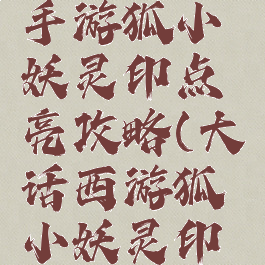 手游狐小
妖灵印点
亮攻略(大
话西游狐
小妖灵印